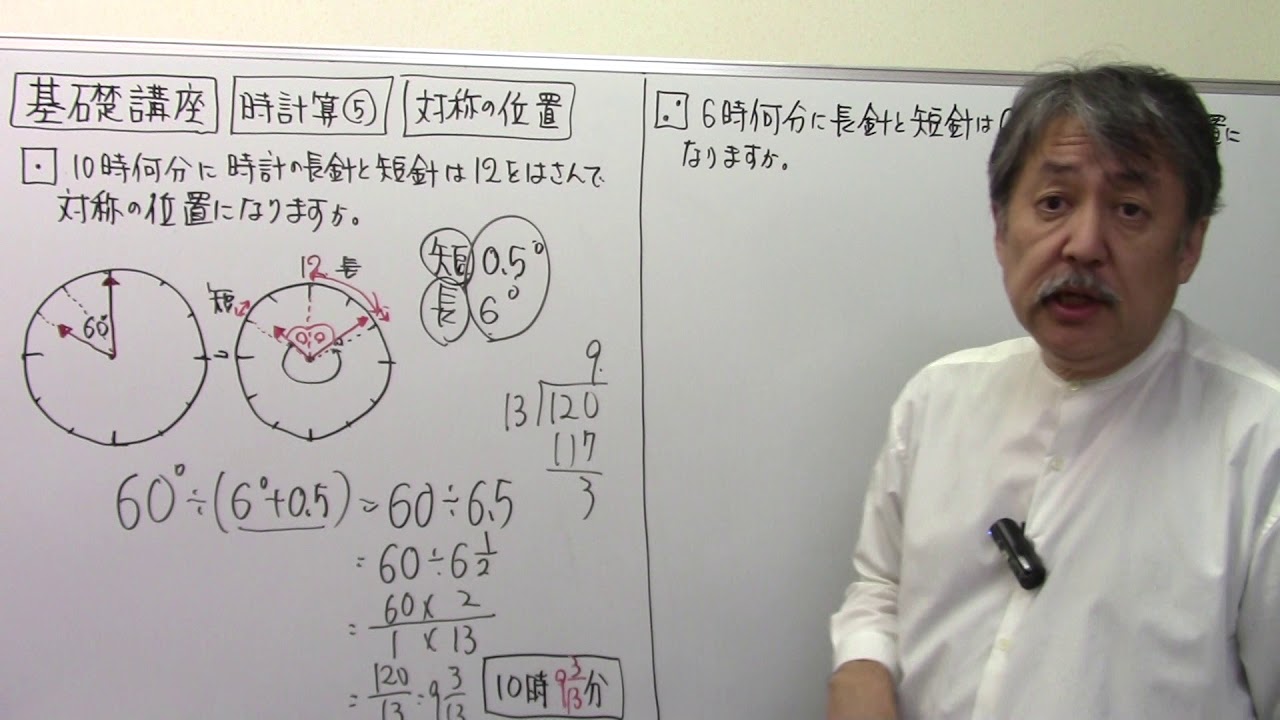 基礎講座 時計算⑤ 対称の位置
・10時何分に時計の長針と短針は12をはさんで
対称の位置になりますか。
60°
12 長
短
短 0.5°
長 6°
9
13 120
117
3
60°÷(6°+0.5)=60÷6.5
=60÷6 1/2
=60×2/1×13
=120/13=9 3/13
10時9 3/13分
: 6時何分に長針と短針は
置に
なりますか。